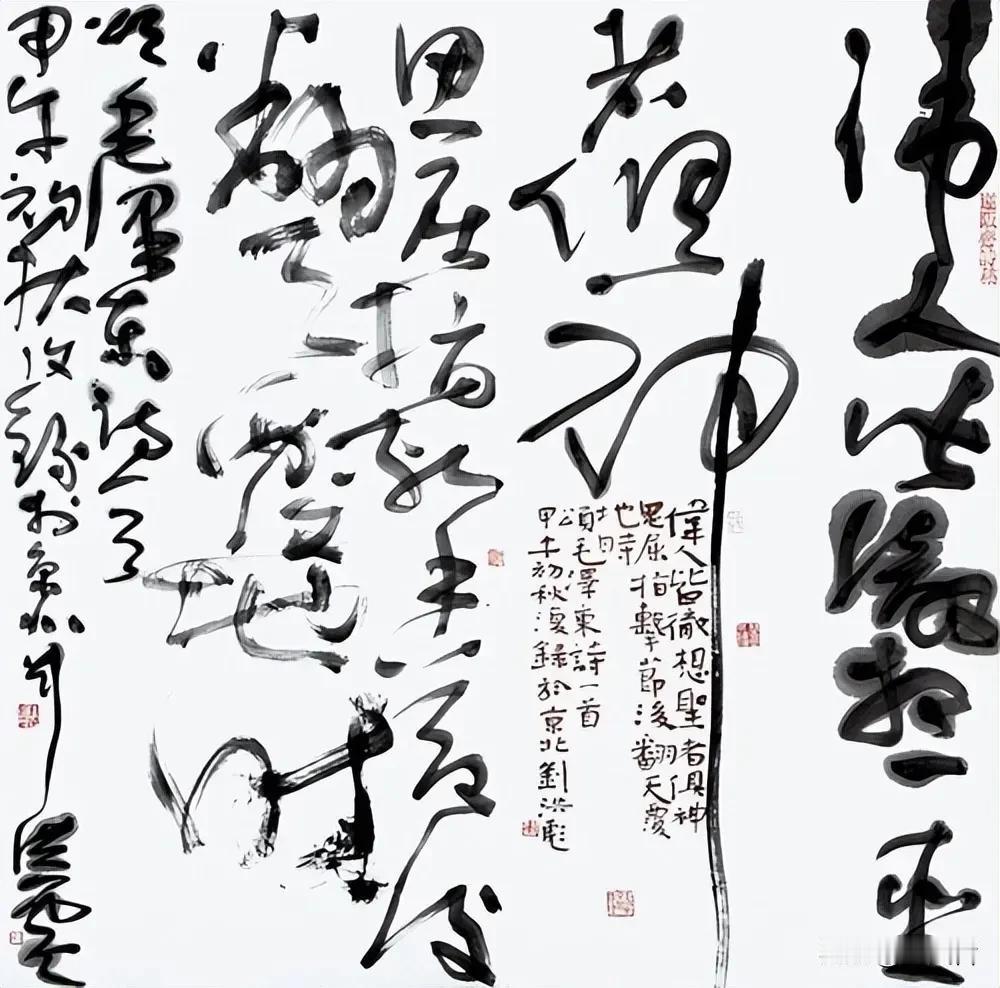 偉人皆徹想聖
者俱神
思屈指擊節後
翻天覆地時
頌毛澤東詩一首
甲午初秋漫錄於京北劉洪彪
偉人皆徹想聖者俱神
思屈指擊節後翻天覆
地時
頌毛澤東詩一首
甲午初秋漫錄於京北劉洪彪